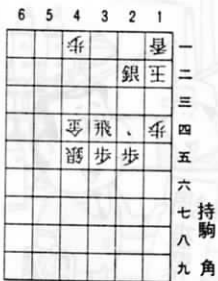 6 5 4 3 2 1
歩 香 一
銀 玉 二
三
金 飛 、 歩 四
銀 歩 歩 五
六
七
八
九
持駒 角